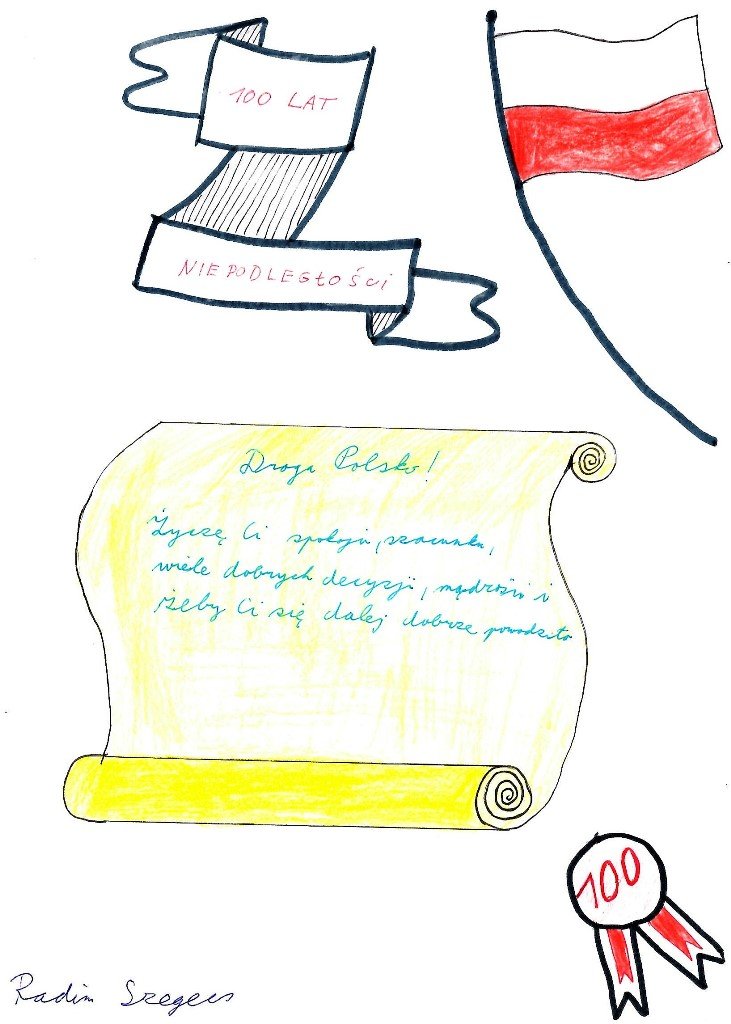 100 LAT
NIEPODLEGŁOŚCI
Droga Polsko!
Życzę Ci spokoju, szacunku,
wiele dobrych decyzji, mądrości i
żeby Ci się dalej dobrze powodziło
100
Radim